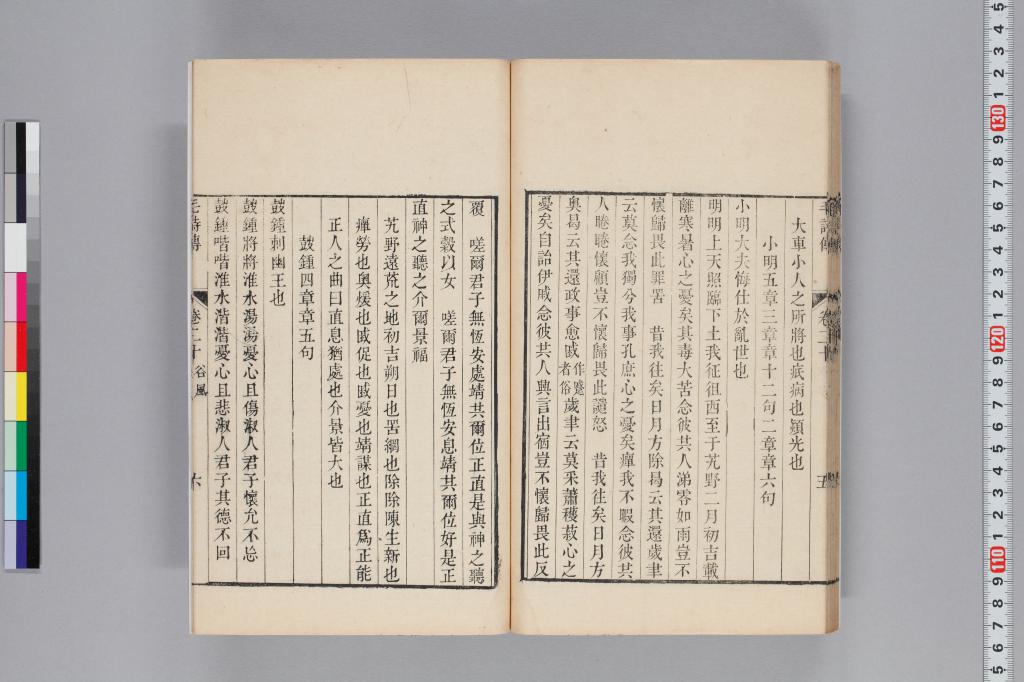 大車小人之所將也疧病也熲光也
小明五章三章章十二句二章章六句
小明大夫悔仕於亂世也
明明上天照臨下土我征徂西至于艽野二月初吉載
離寒暑心之憂矣其毒大苦念彼共人涕零如雨豈不
懷歸畏此罪罟 昔我往矣日月方除曷云其還歲聿
云莫念我獨兮我事孔庶心之憂矣癉我不暇念彼共
人睠睠懷顧豈不懷歸畏此譴怒 昔我往矣日月方
奧曷云其還政事愈戚作蹙者俗歲聿云莫采蕭穫菽心之
憂矣自詒伊戚念彼共人興言出宿豈不懷歸畏此反
覆 嗟爾君子無恆安處靖共爾位正直是與神之聽
之式穀以女 嗟爾君子無恆安息靖共爾位好是正
直神之聽之介爾景福
艽野遠荒之地初吉朔日也罟網也除除陳生新也
癉勞也奧煖也戚促也戚憂也靖謀也正直爲正能
正人之曲曰直息猶處也介景皆大也
鼓鍾四章章五句
鼓鍾刺幽王也
鼓鍾將將淮水湯湯憂心且傷淑人君子懷允不忘
鼓鍾喈喈淮水湝湝憂心且悲淑人君子其德不回
毛詩傳 卷二十 谷風 六
130
120
110